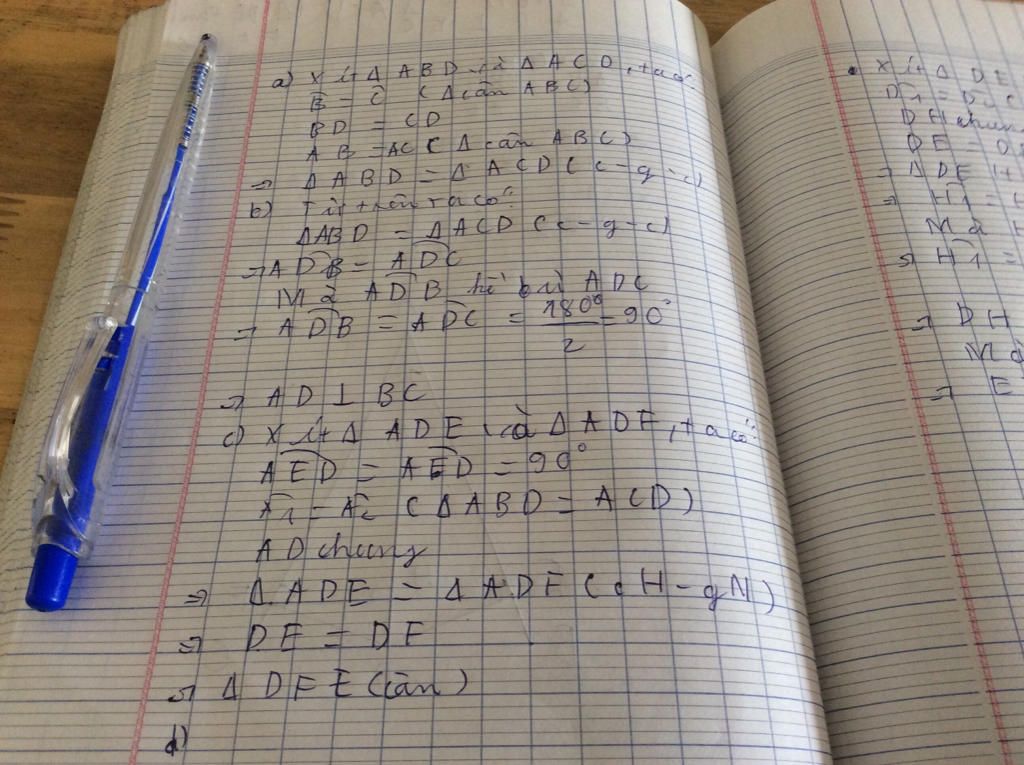 a) Xét Δ ABD và Δ ACD, ta có:
B̂ = Ĉ (Δ cân ABC)
BD = CD
AB = AC (Δ cân ABC)
=> Δ ABD = Δ ACD (c-g-c)
b) Từ trên ta có:
ΔABD = ΔACD (c-g-c)
=> ADB = ADC
Mà ADB kề bù ADC
=> ADB = ADC = 180°/2 = 90°
=> AD ⊥ BC
c) Xét Δ ADE và Δ ADF, ta có:
AED = AFD = 90°
A1 = A2 (Δ ABD = ACD)
AD chung
=> Δ ADE = Δ ADF (cH-gN)
=> DE = DF
=> Δ DFE (cân)
d)
• Xét Δ DE
D1 = D2 (
DH chun
DE = D
=> Δ DE
=> H1 =
Mà H
=> H1 =
=> DH
Mà
=> E